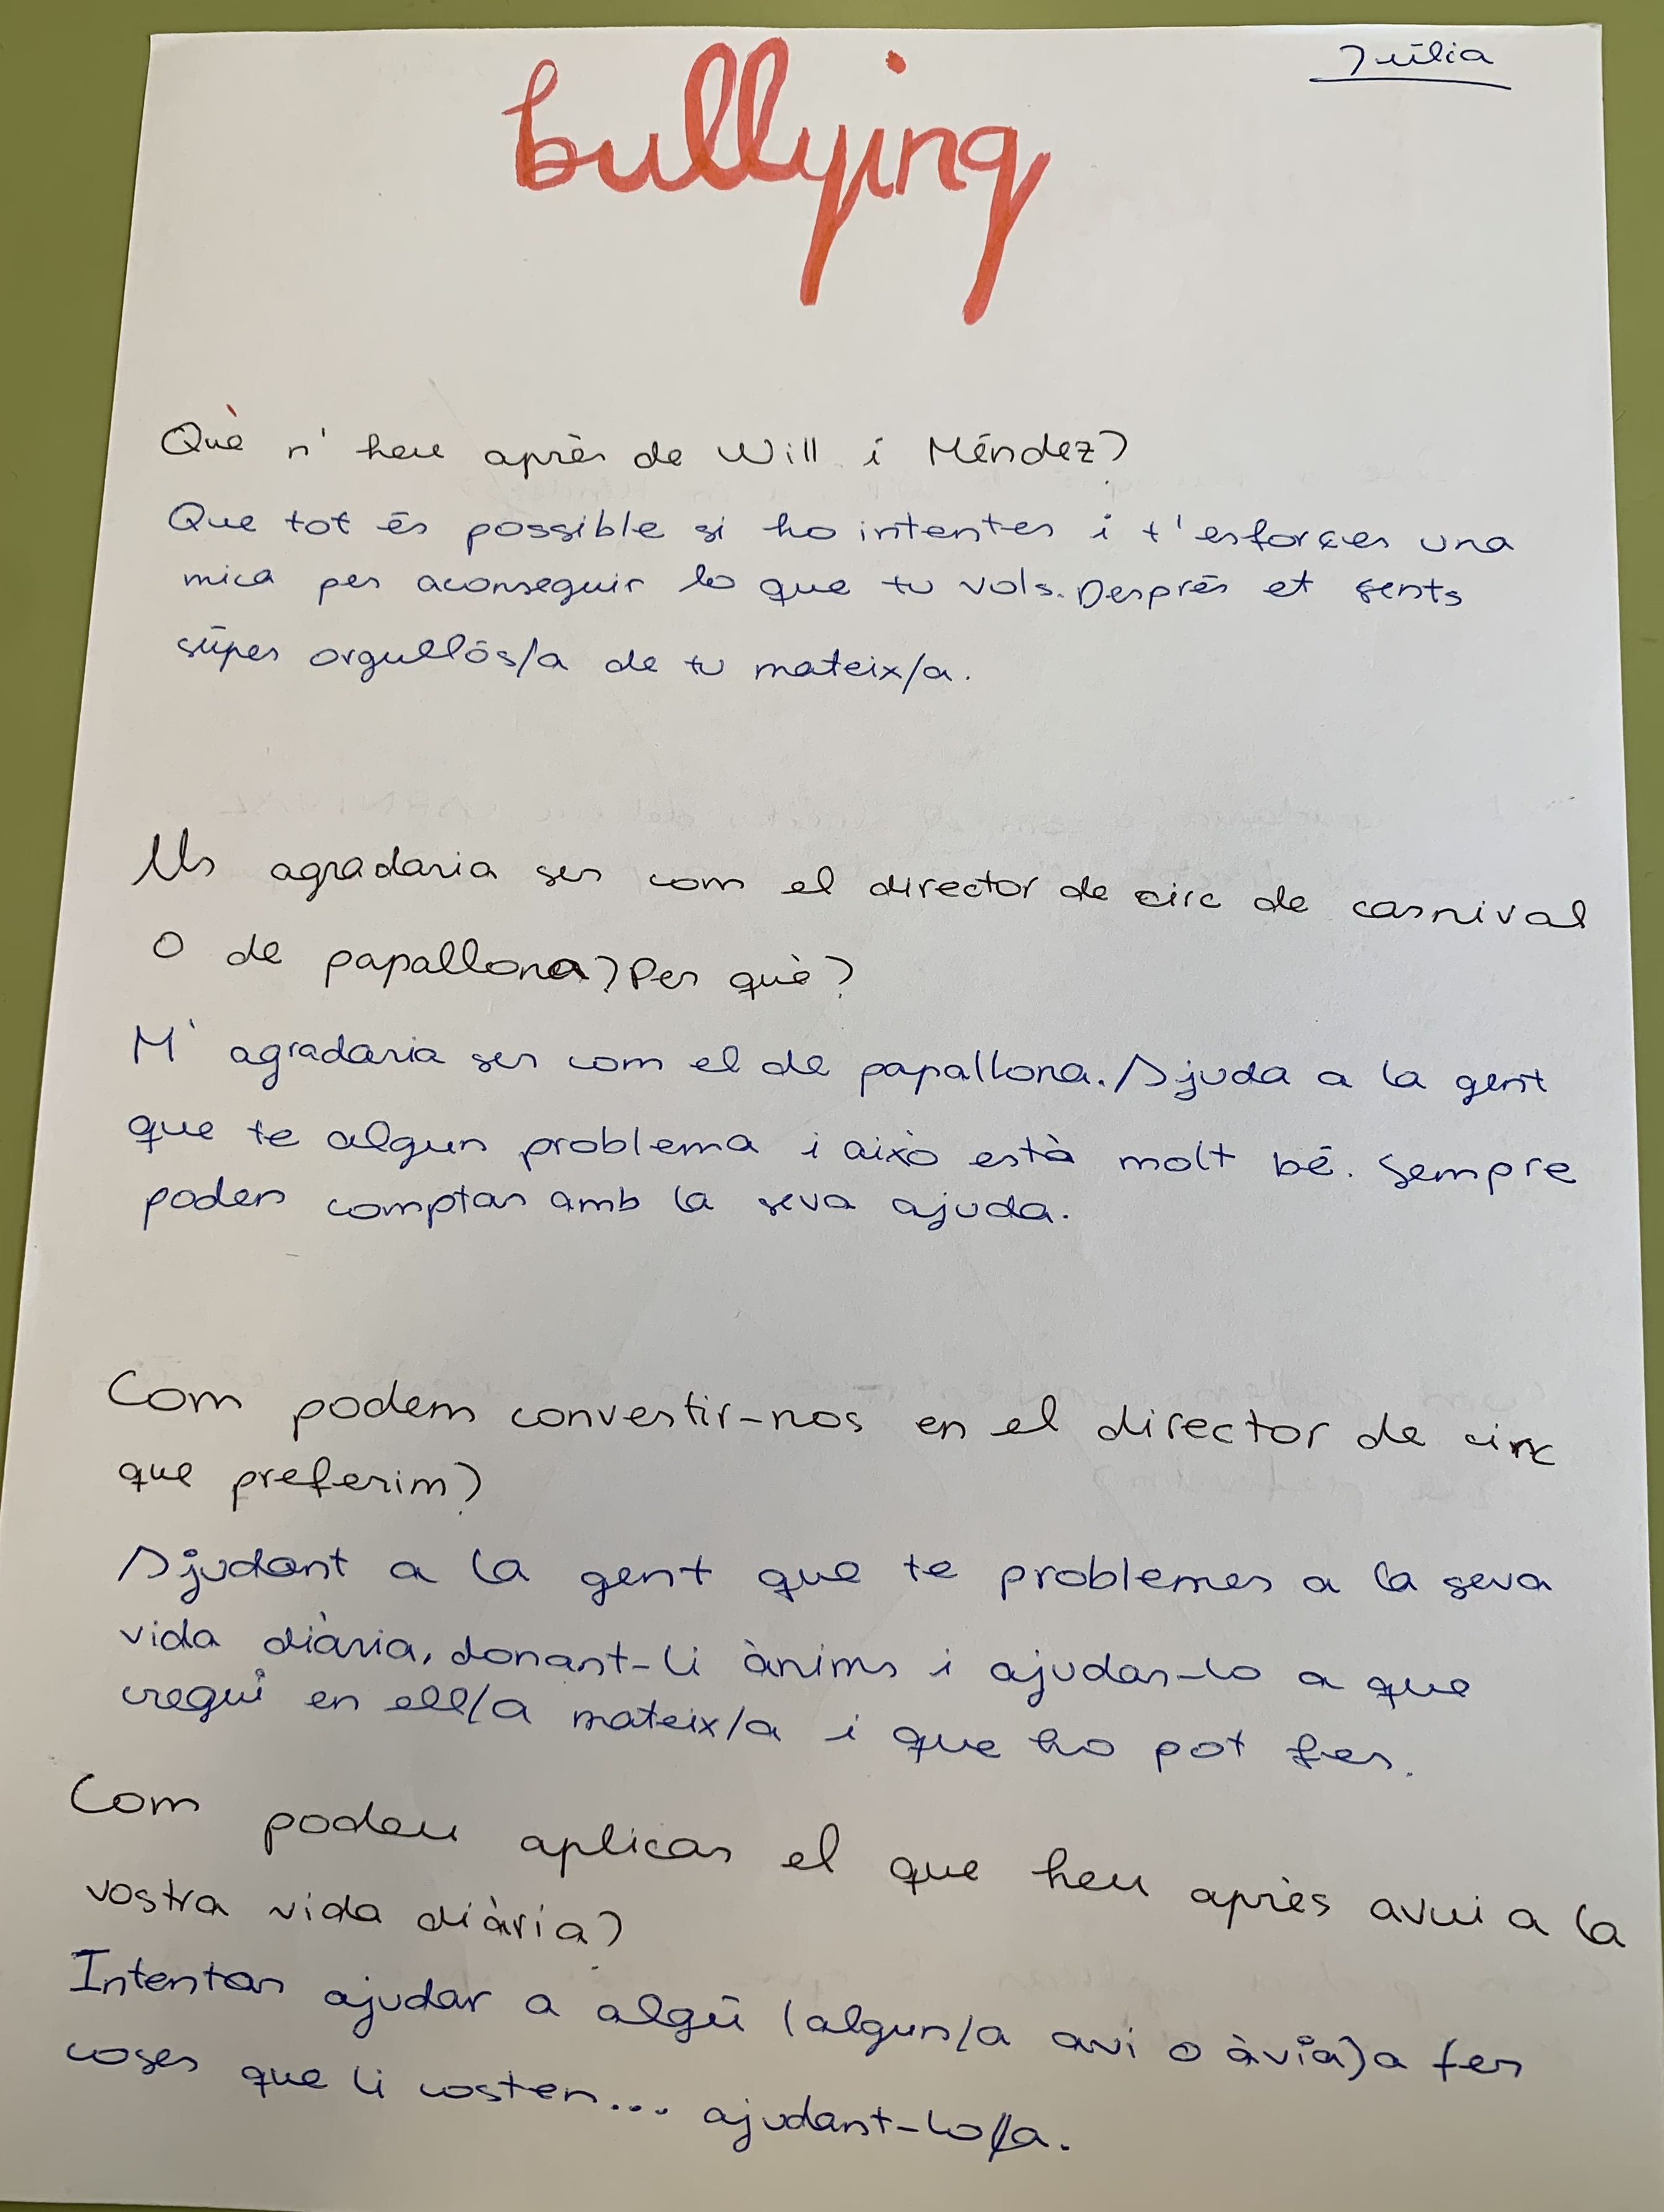 Júlia
bullying
Què n'heu après de Will i Méndez?
Que tot és possible si ho intentes i t'esforçes una
mica per aconseguir lo que tu vols. Després et sents
súper orgullós/a de tu mateix/a.
Us agradaria ser com el director de circ de carnival
O de papallona? Per què?
M'agradaria ser com el de papallona. Ajuda a la gent
que te algun problema i això està molt bé. Sempre
poden comptar amb la seva ajuda.
Com podem convertir-nos en el director de circ
que preferim?
Ajudant a la gent que te problemes a la seva
vida diària, donant-li ànims i ajudar-lo a que
cregui en ell/a mateix/a i que ho pot fer.
Com podeu aplicar el que heu après avui a la
vostra vida diària?
Intentar ajudar a algú (algun/a avi o àvia) a fer
coses que li costen... ajudant-lo/a.